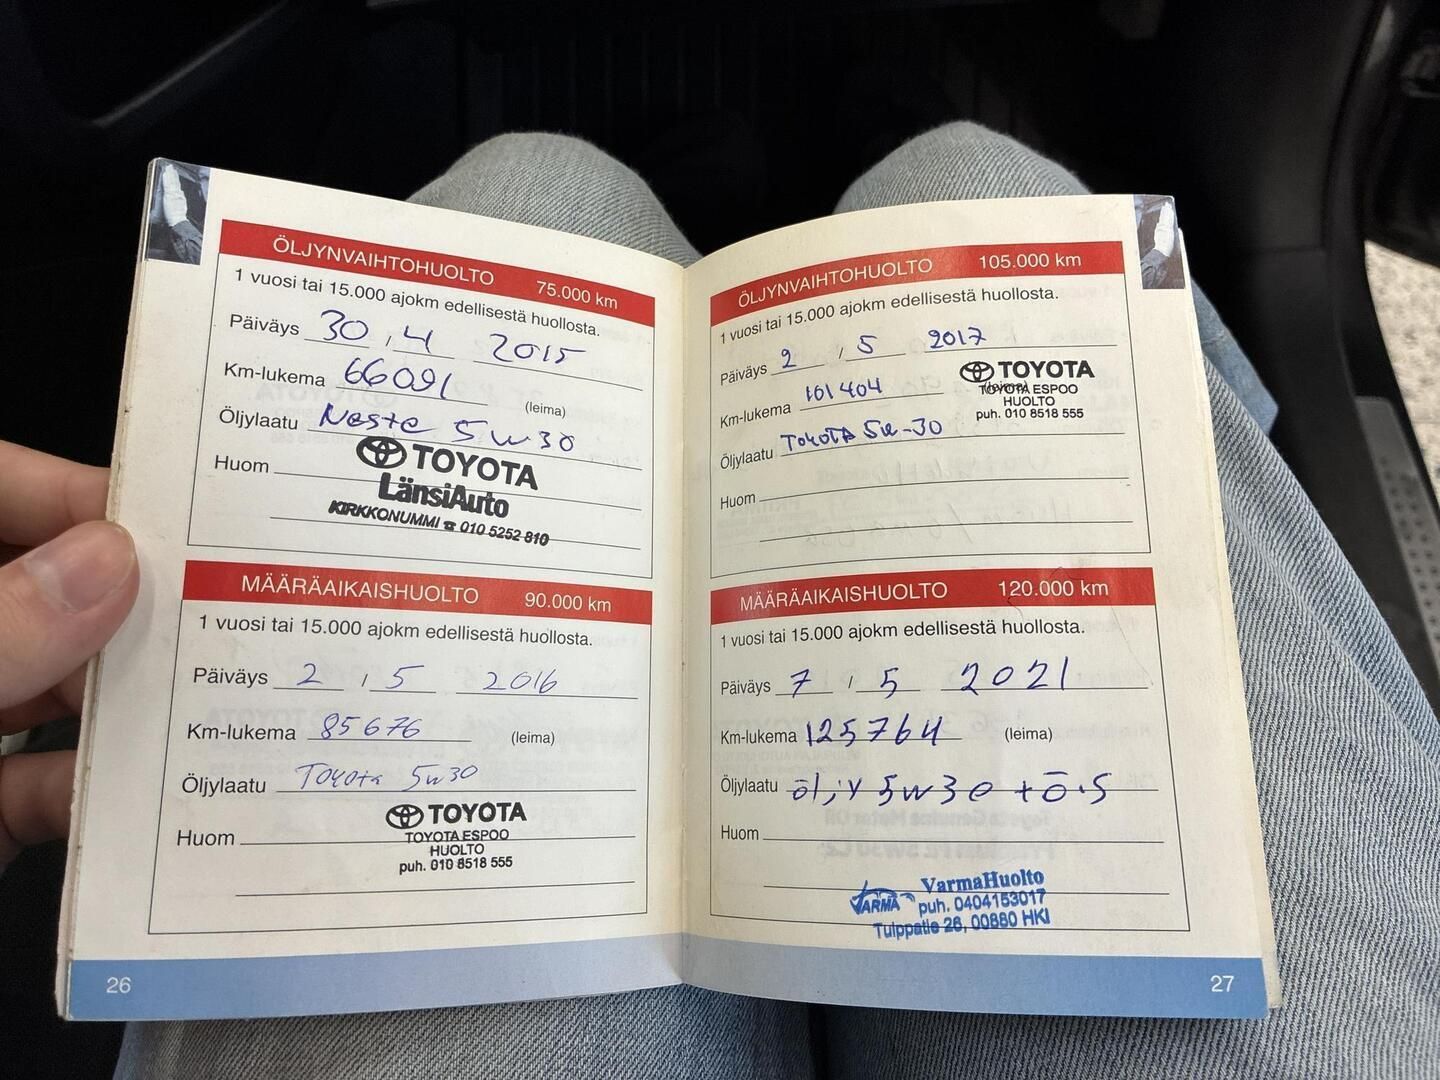 ÖLJYNVAIHTOHUOLTO 75.000 km
1 vuosi tai 15.000 ajokm edellisestä huollosta.
Päiväys 30 / 4 2015
Km-lukema 66091 (leima)
Öljylaatu Neste 5w30
Huom
TOYOTA
LänsiAuto
KIRKKONUMMI ☎ 010 5252 810
MÄÄRÄAIKAISHUOLTO 90.000 km
1 vuosi tai 15.000 ajokm edellisestä huollosta.
Päiväys 2 / 5 2016
Km-lukema 85676 (leima)
Öljylaatu Toyota 5w30
Huom
TOYOTA
TOYOTA ESPOO
HUOLTO
puh. 010 8518 555
26
ÖLJYNVAIHTOHUOLTO 105.000 km
1 vuosi tai 15.000 ajokm edellisestä huollosta.
Päiväys 2 / 5 2017
Km-lukema 101404 (leima)
TOYOTA
TOYOTA ESPOO
HUOLTO
puh. 010 8518 555
Öljylaatu TOYOTA 5w-30
Huom
MÄÄRÄAIKAISHUOLTO 120.000 km
1 vuosi tai 15.000 ajokm edellisestä huollosta.
Päiväys 7 / 5 2021
Km-lukema 125764 (leima)
Öljylaatu öljy 5w30 + ō.s
Huom
VARMA VarmaHuolto
puh. 0404153017
Tulppatie 26, 00880 HKI
27